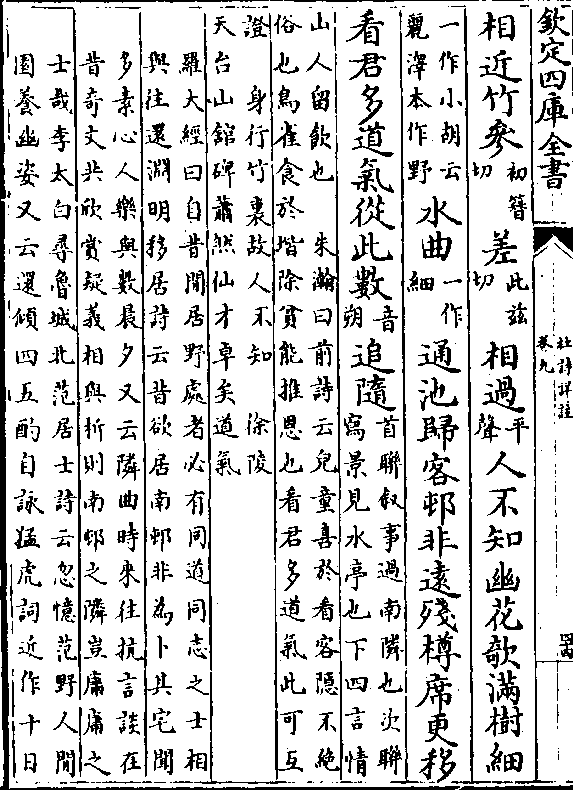 欽定四庫全書
杜詩詳註
卷九
相近竹參初簪切差此兹切相過平聲人不知幽花欹滿樹細
一作小胡云麗澤本作野水曲一作細通池歸客邨非遠殘樽席更移
看君多道氣從此數音朔追隨首聯叙事過南隣也次聯寫景見水亭也下四言情
山人留飲也 朱瀚曰前詩云兒童喜於看客隠不絶
俗也鳥雀食於堦除貧能推恩也看君多道氣此可互
證 身行竹裏故人不知 徐陵
天台山舘碑蕭然仙才卓矣道氣
羅大經曰自昔閒居野處者必有同道同志之士相
與往還淵明移居詩云昔欲居南邨非為卜其宅聞
多素心人樂與數晨夕又云隣曲時來往抗言談在
昔奇文共欣賞疑義相與析則南邨之隣豈庸庸之
士哉李太白尋魯城北范居士詩云忽憶范野人閒
園養幽姿又云還傾四五酌自詠猛虎詞近作十日